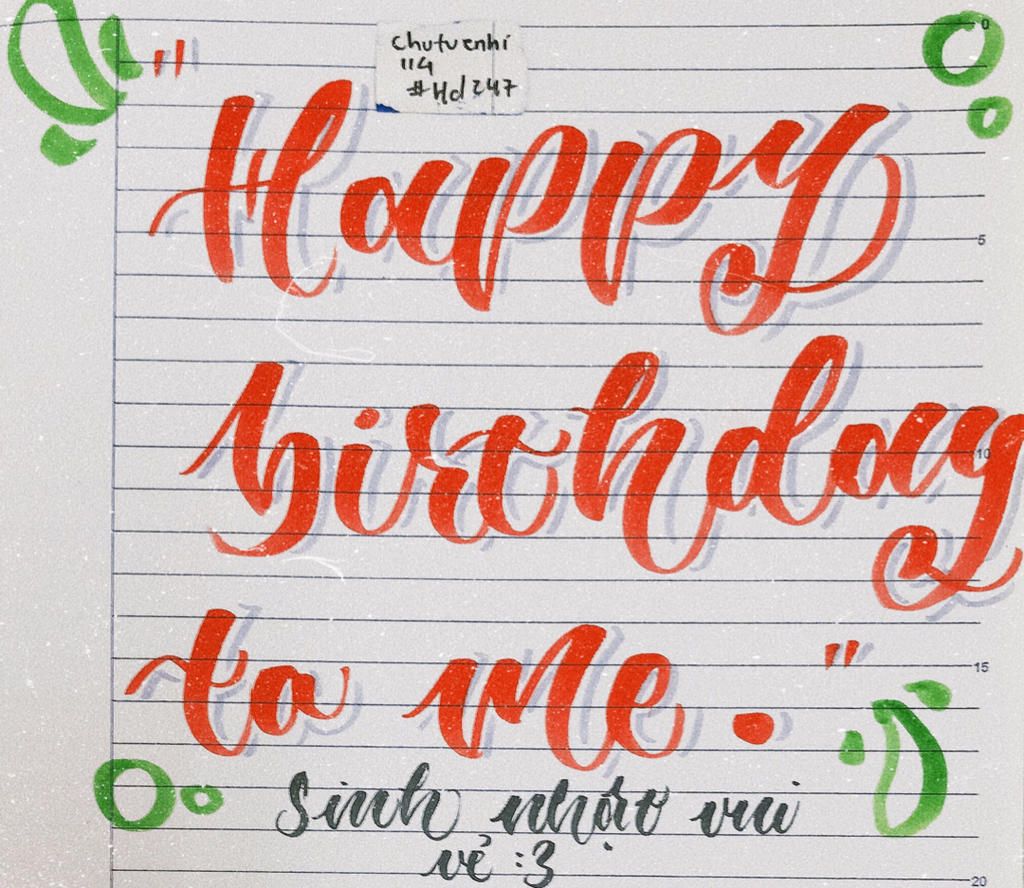 Chutuenhi
114
#Hd247
"Happy
birthday
to me."
Sinh nhật vui
vẻ :3
0
5
10
15
20